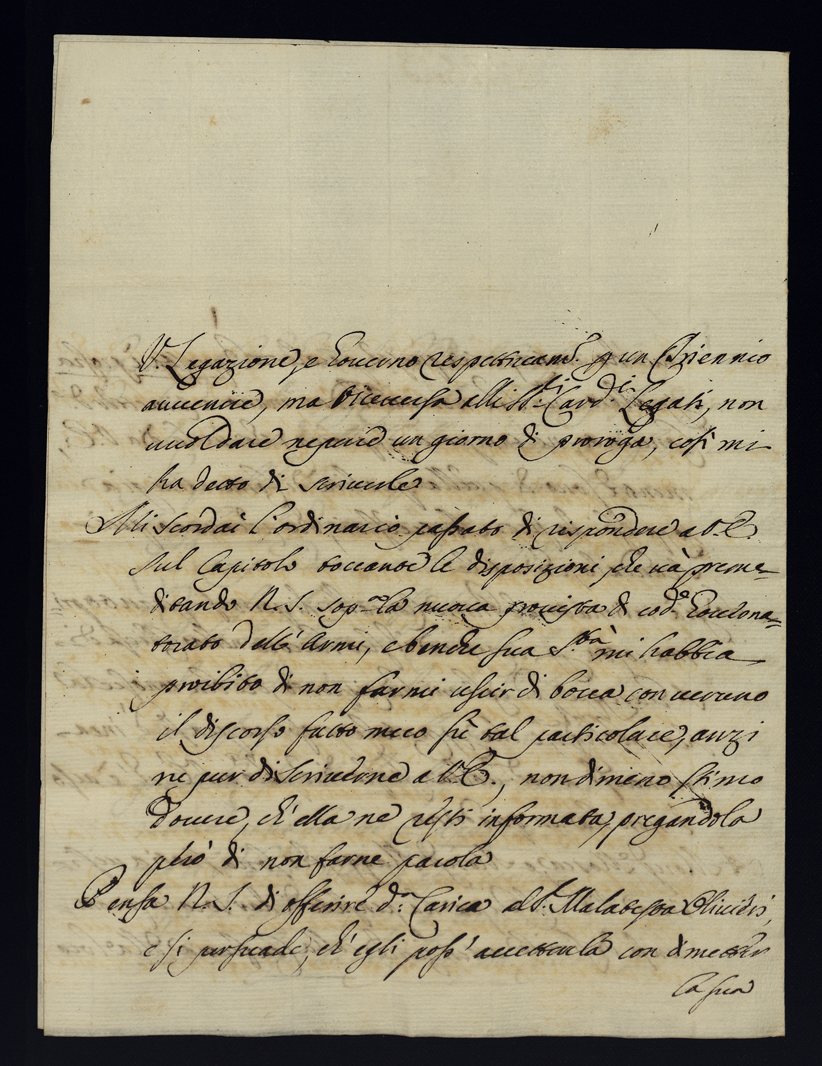 V. Legazione, e Governo respettivam.e p un Triennio
avvenire, ma viceversa alli SS.ri Card.li Legati, non
accordare nepure un giorno di proroga, così mi
ha detto di scriverle
Mi scordai l'ordinario passato di rispondere a V.E.
sul Capitolo toccante le disposizioni, che và preme-
ditando N. S. sop.a la nuova provista di cod.o Governa-
torato dell'Armi, e benche sua S.tà mi habbia
proibito di non farmi uscir di bocca con veruno
il discorso fatto meco sù tal particolare, anzi
ne pur di scrivone a V.E., non dimeno stimo
dovere, ch'ella ne resti informata, pregandola
però di non farne parola
Pensa N. S. di offerire d.a Carica al S.r Malatesta Olivieri,
e si persuade, ch'egli poss'accettarla con dimetter
la sua